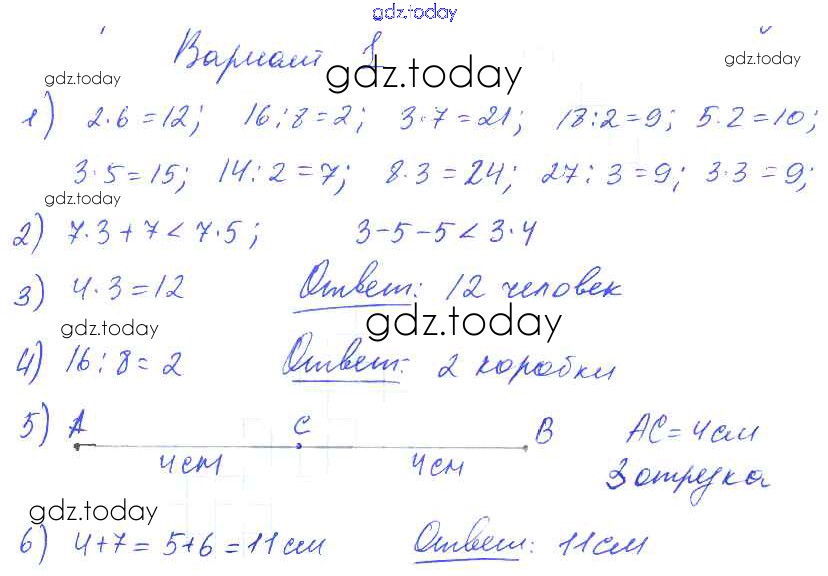 gdz.today
Вариант 1
gdz.today
gdz.today
1) 2·6=12; 16:8=2; 3·7=21; 18:2=9; 5·2=10;
3·5=15; 14:2=7; 8·3=24; 27:3=9; 3·3=9;
gdz.today
2) 7·3+7<7·5; 3-5-5<3·4
3) 4·3=12 Ответ: 12 человек
gdz.today
gdz.today
4) 16:8=2 Ответ: 2 коробки
5) A C B AC=4см
4см 4см 3 отрезка
gdz.today
6) 4+7=5+6=11см Ответ: 11см